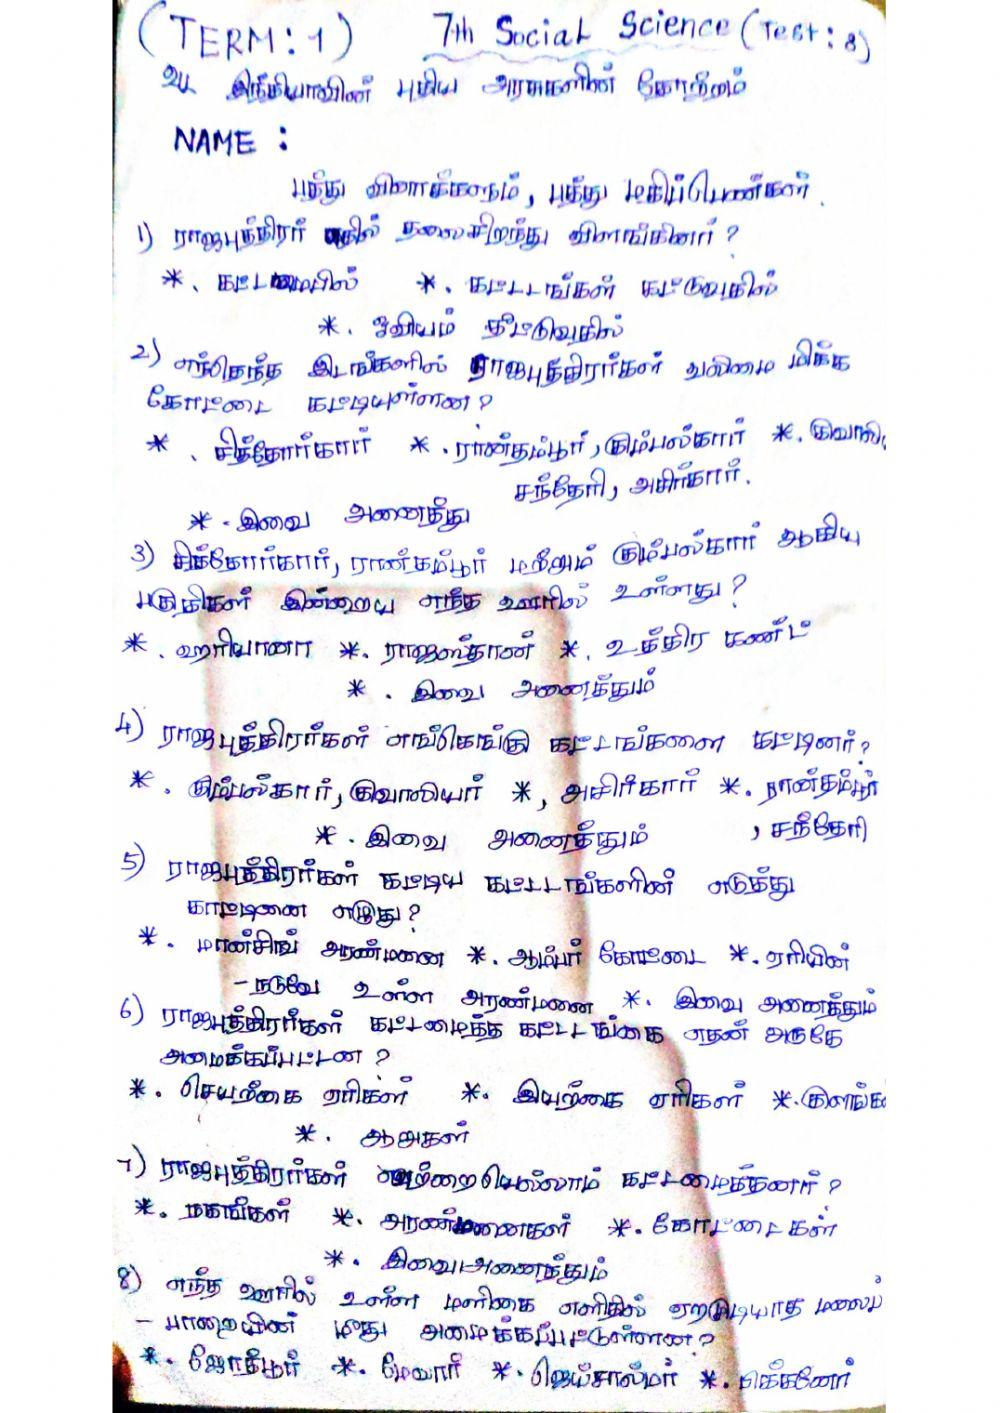 (TERM: 1) 7th Social Science (Test: 8)
இந்தியாவின் புதிய அரசுகளின் தோற்றம்
NAME :
பத்து வினாக்களும், பத்து மதிப்பெண்கள்.
1) ராஜபுத்திரர் எதில் தலைசிறந்து விளங்கினர்?
*. கட்டடமைபில் *. கட்டடங்கள் கட்டுவதில்
*. ஓவியம் தீட்டுவதில்
2) எந்தெந்த இடங்களில் ராஜபுத்திரர்கள் வலிமை மிக்க
கோட்டை கட்டியுள்ளன?
*. சித்தோர்கார் *. ராண்தம்பூர், கும்பல்கார் *. குவாலி
சந்தேரி, அசிர்கார்.
*. இவை அனைத்து
3) சித்தோர்கார், ராண்தம்பூர் மற்றும் கும்பல்கார் ஆகிய
பகுதிகள் இன்றைய எந்த ஊரில் உள்ளது?
*. ஹரியானா *. ராஜஸ்தான் *. உத்திர கண்ட்
*. இவை அனைத்தும்
4) ராஜபுத்திரர்கள் எங்கெங்கு கட்டடங்களை கட்டினர்?
*. கும்பல்கார், குவாலியர் *, அசிரிகார் *. ரான்தம்பூர்
, சந்தேரி
*. இவை அனைத்தும்
5) ராஜபுத்திரர்கள் கட்டிய கட்டடங்களின் எடுத்து
காட்டினை எழுது?
*. மான்சிங் அரண்மனை *. ஆம்பர் கோட்டை *. ஏரியின்
-நடுவே உள்ள அரண்மனை *. இவை அனைத்தும்
6) ராஜபுத்திரர்கள் கட்டமைத்த கட்டடங்கை எதன் அருதே
அமைக்கப்பட்டன?
*. செயற்கை ஏரிகள் *. இயற்கை ஏரிகள் *. குளங்க
*. ஆறுகள்
7) ராஜபுத்திரர்கள் கட்டமைத்தனர்?
*. மகங்கள் *. அரண்மனைகள் *. கோட்டைகள்
*. இவை அனைத்தும்
8) எந்த ஊரில் உள்ள மளிகை எளிதில் ஏறமுடியாத மலைப்
- பாறையின் மீது அமைக்கப்பட்டுள்ளன?
*. ஜோத்பூர் *. மேவார் *. ஜெய்சால்மர் *. பிக்கனேர்